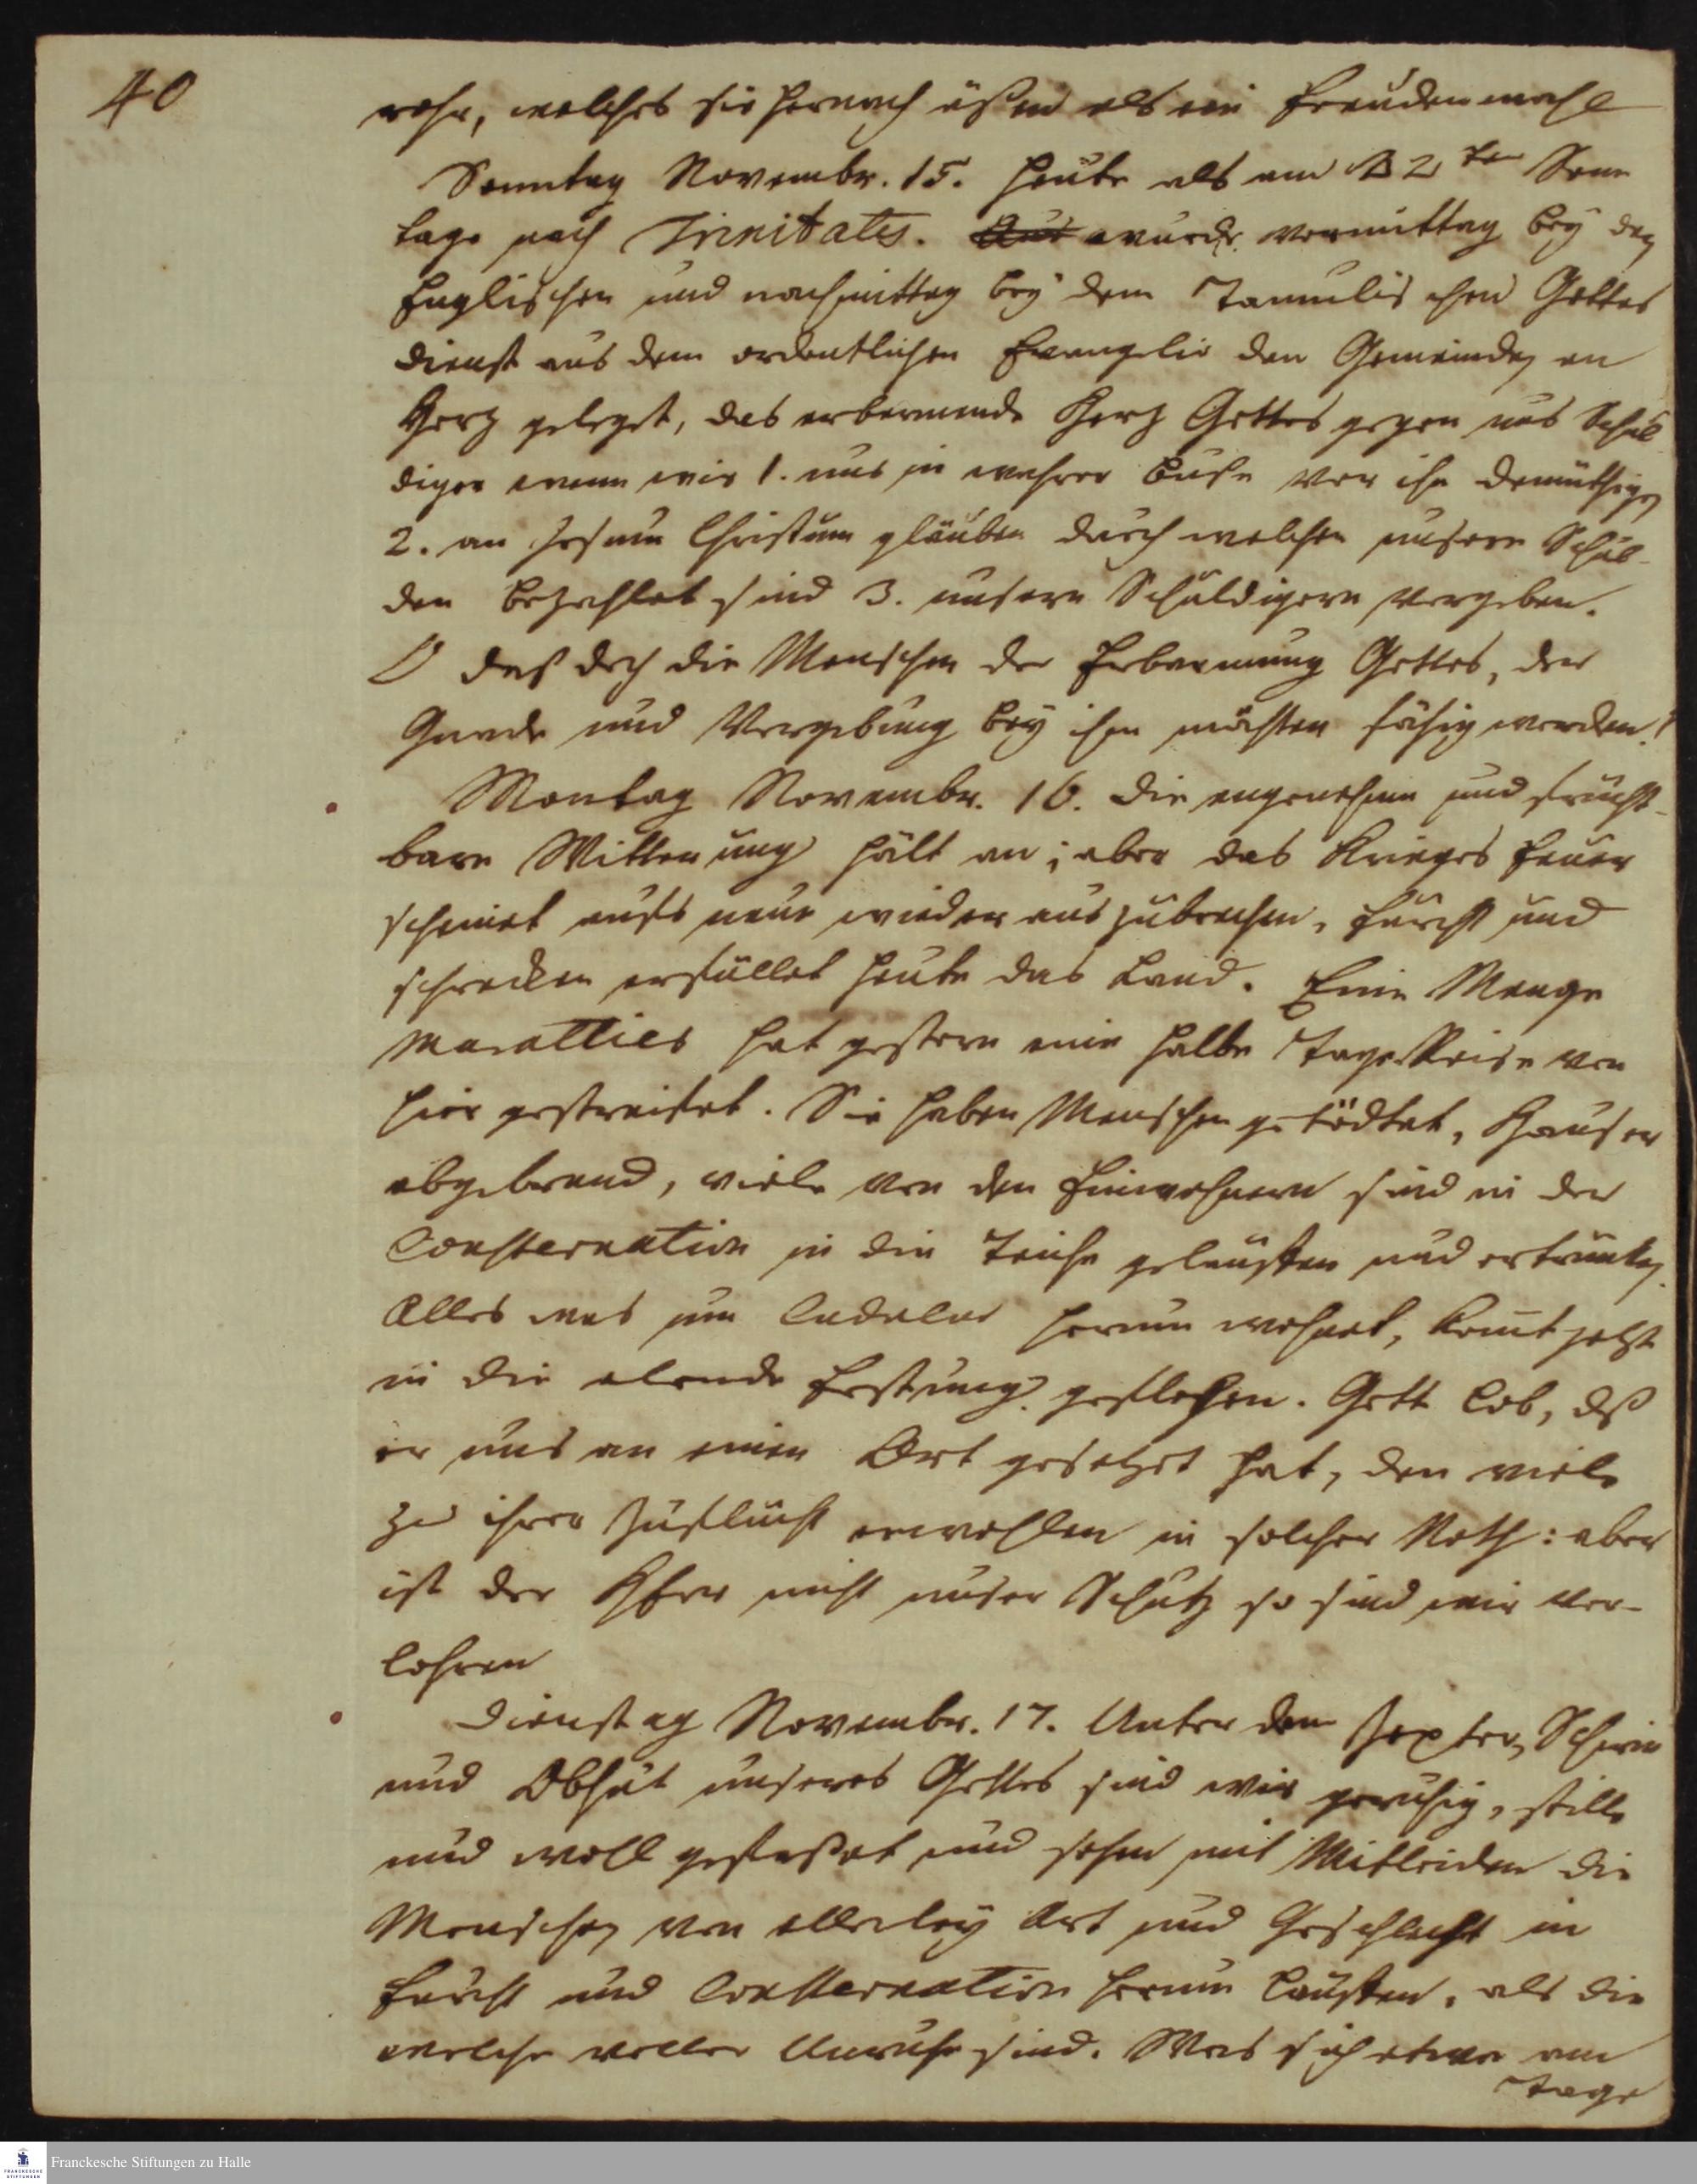 40
rohr, welches sie hernach aßen als ein Freudenmahl
Sonntag Novembr. 15. Heute als am 22ten Sonn
tage nach Trinitatis. wurde vormittag bey den
Englischen und nachmittag bey dem Tamulischen Gottes
dienst aus dem ordentlichen Evangelio den Gemeinden an
Herz geleget, das erbarmende Herz Gottes gegen uns Schul
diger wenn wir 1. uns in wahrer Buße vor ihn demüthigen
2. an Jesum Christum gläuben durch welchen unsere Schul-
den bezahlet sind 3. unsern Schuldigern vergeben.
O daß doch die Menschen der Erbarmung Gottes, der
Gnade und Vergebung bey ihm möchten fähig werden!
Montag Novembr. 16. Die angenehme und frücht-
bare Witterung hält an; aber das Krieges Feuer
scheinet aufs neue wieder auszubrechen, Furcht und
schrecken erfüllet heute das Land. Eine Menge
Maratties hat gestern eine halbe Tage Reise von
hier gestreifet. Sie haben Menschen getödtet, Hauser
abgebrand, viele von den Einwohnern sind in der
Consternation in die Teiche gelauffen und ertrunken.
Alles was um Cudelur herum wohnet, komt jetzt
in die elende Festung geflohen. Gott Lob, dß
er uns an einen Ort gesetzet hat, den viele
zu ihrer Zuflucht erwehlen in solcher Noth: aber
ist der HErr nicht unser Schutz so sind wir ver-
lohren
Dienstag Novembr. 17. Unter dem Zepter, Schirm
und Obhut unseres Gottes sind wir geruhig, stille
und woll gefaßet und sehen mit Mitleiden die
Menschen von allerley Art und Geschlecht in
Furcht und Consternation herum lauffen, als die
welche voller Unruhe sind. Was sich etwa am
Tage
Franckesche Stiftungen zu Halle
FRANCKESCHE
STIFTUNGEN